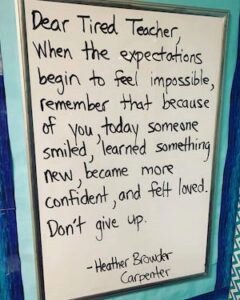 Dear Tired Teacher,
When the expectations
begin to feel impossible,
remember that because
of you, today someone
smiled, learned something
new, became more
confident, and felt loved.
Don't give up.
-Heather Browder
Carpenter